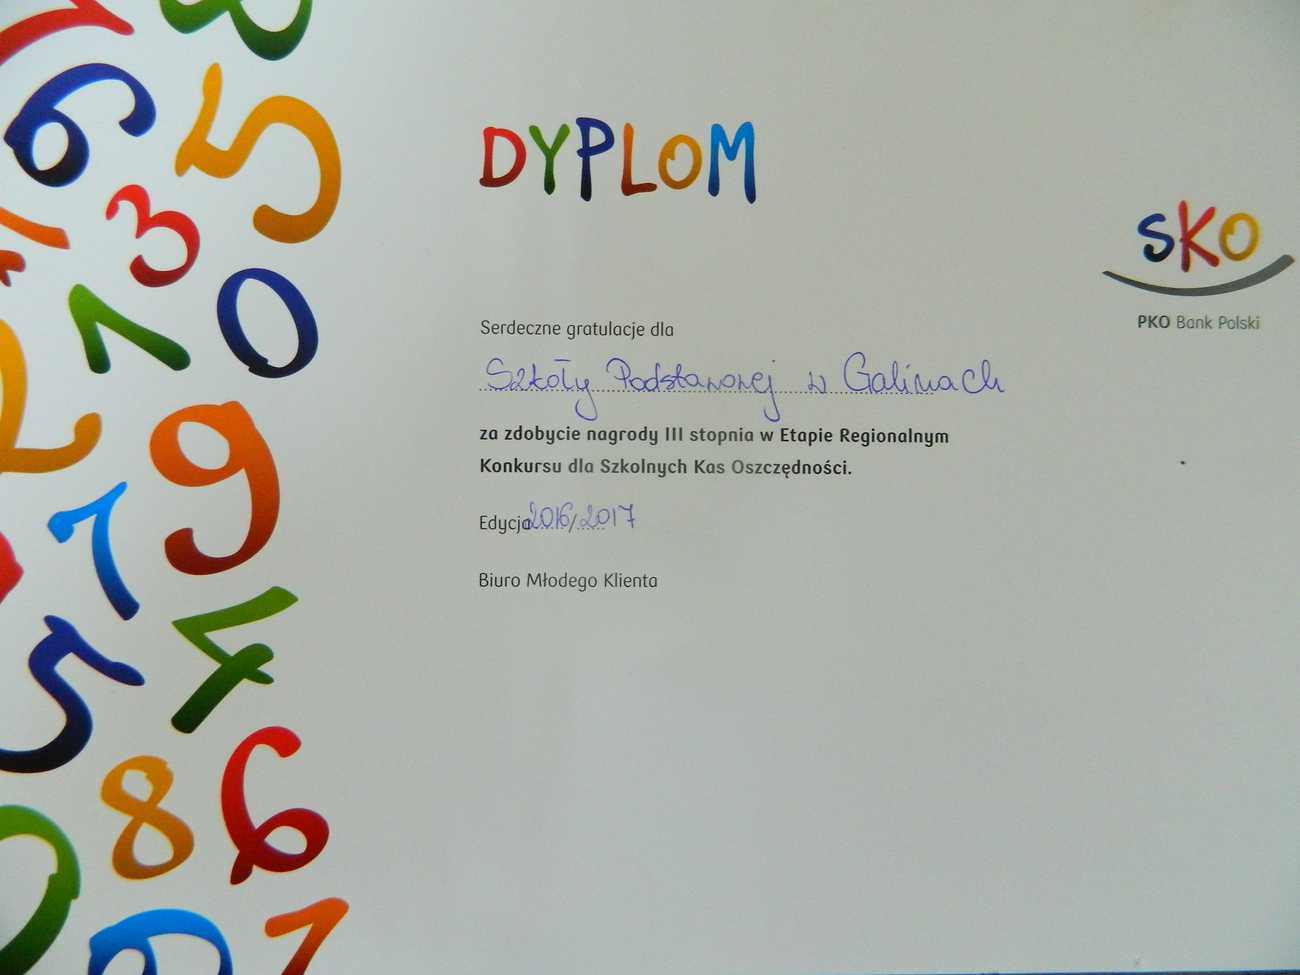 DYPLOM
SKO
PKO Bank Polski
Serdeczne gratulacje dla
Szkoły Podstawowej w Galinach
za zdobycie nagrody III stopnia w Etapie Regionalnym
Konkursu dla Szkolnych Kas Oszczędności.
Edycja 2016/2017
Biuro Młodego Klienta